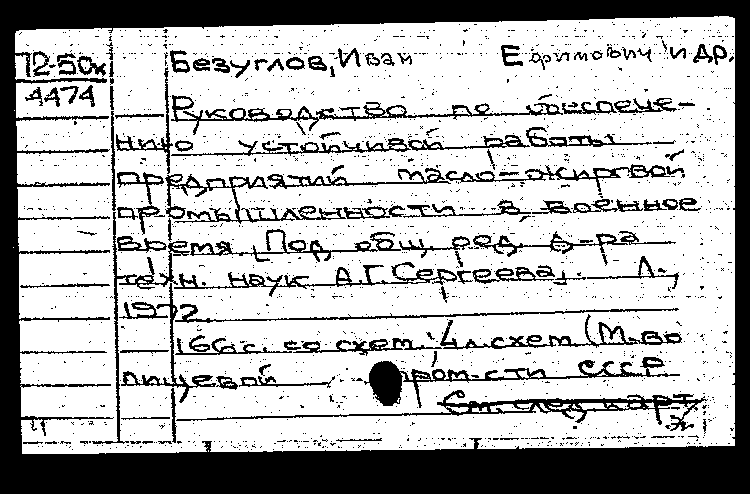 72-50к Безуглов, Иван Ефимович и др.
4474
Руководство по обеспече-
нию устойчивой работы
предприятий масло-жировой
промышленности в военное
время. [Под общ. ред. д-ра
техн. наук А.Г. Сергеева]. Л.,
1972.
166 с. со схем.; 4 л. схем (М-во
пищевой пром-сти СССР
См. след. карт.